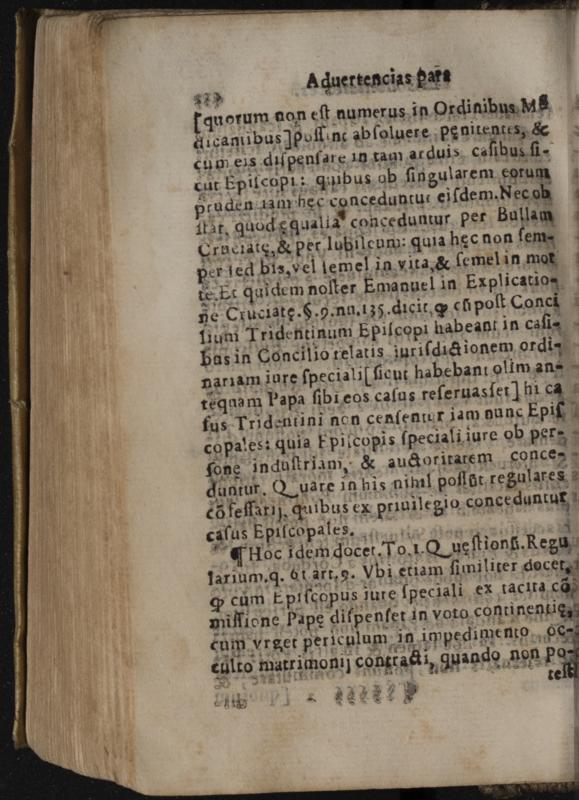 Aduertencias para
[quorum non est numerus in Ordinibus Mẽ
dicantibus]possint absoluere pęnitentes, &
cum eis dispensare in tam arduis casibus si-
cut Episcopi: quibus ob singularem eorum
pruden iam hęc conceduntur eisdem.Nec ob
star, quod ęqualia conceduntur per Bullam
Cruciatę,& per Iubileum: quia hęc non sem-
per sed bis,vel semel in vita,& semel in mor
te.Et quidem noster Emanuel in Explicatio-
ne Cruciatę.§.9.nu.135.dicit, ꝙ cũ post Conci
lium Tridentinum Episcopi habeant in casi-
bus in Concilio relatis iurisdictionem ordi-
nariam iure speciali[sicut habebant olim an-
tequam Papa sibi eos casus reseruasset] hi ca
sus Tridentini non censentur iam nunc Epis
copales: quia Episcopis speciali iure ob per-
sonę industriam, & auctoritatem conce-
duntur. Quare in his nihil possũt regulares
cõfessarij, quibus ex priuilegio conceduntur
casus Episcopales.
¶ Hoc idem docet.To.1.Quęstionũ.Regu
larium.q. 61 art.9. Vbi etiam similiter docet,
ꝙ cum Episcopus iure speciali ex tacita cõ
missione Papę dispenset in voto continentię,
cum vrget periculum in impedimento oc-
culto matrimonij contracti, quando non po-
test